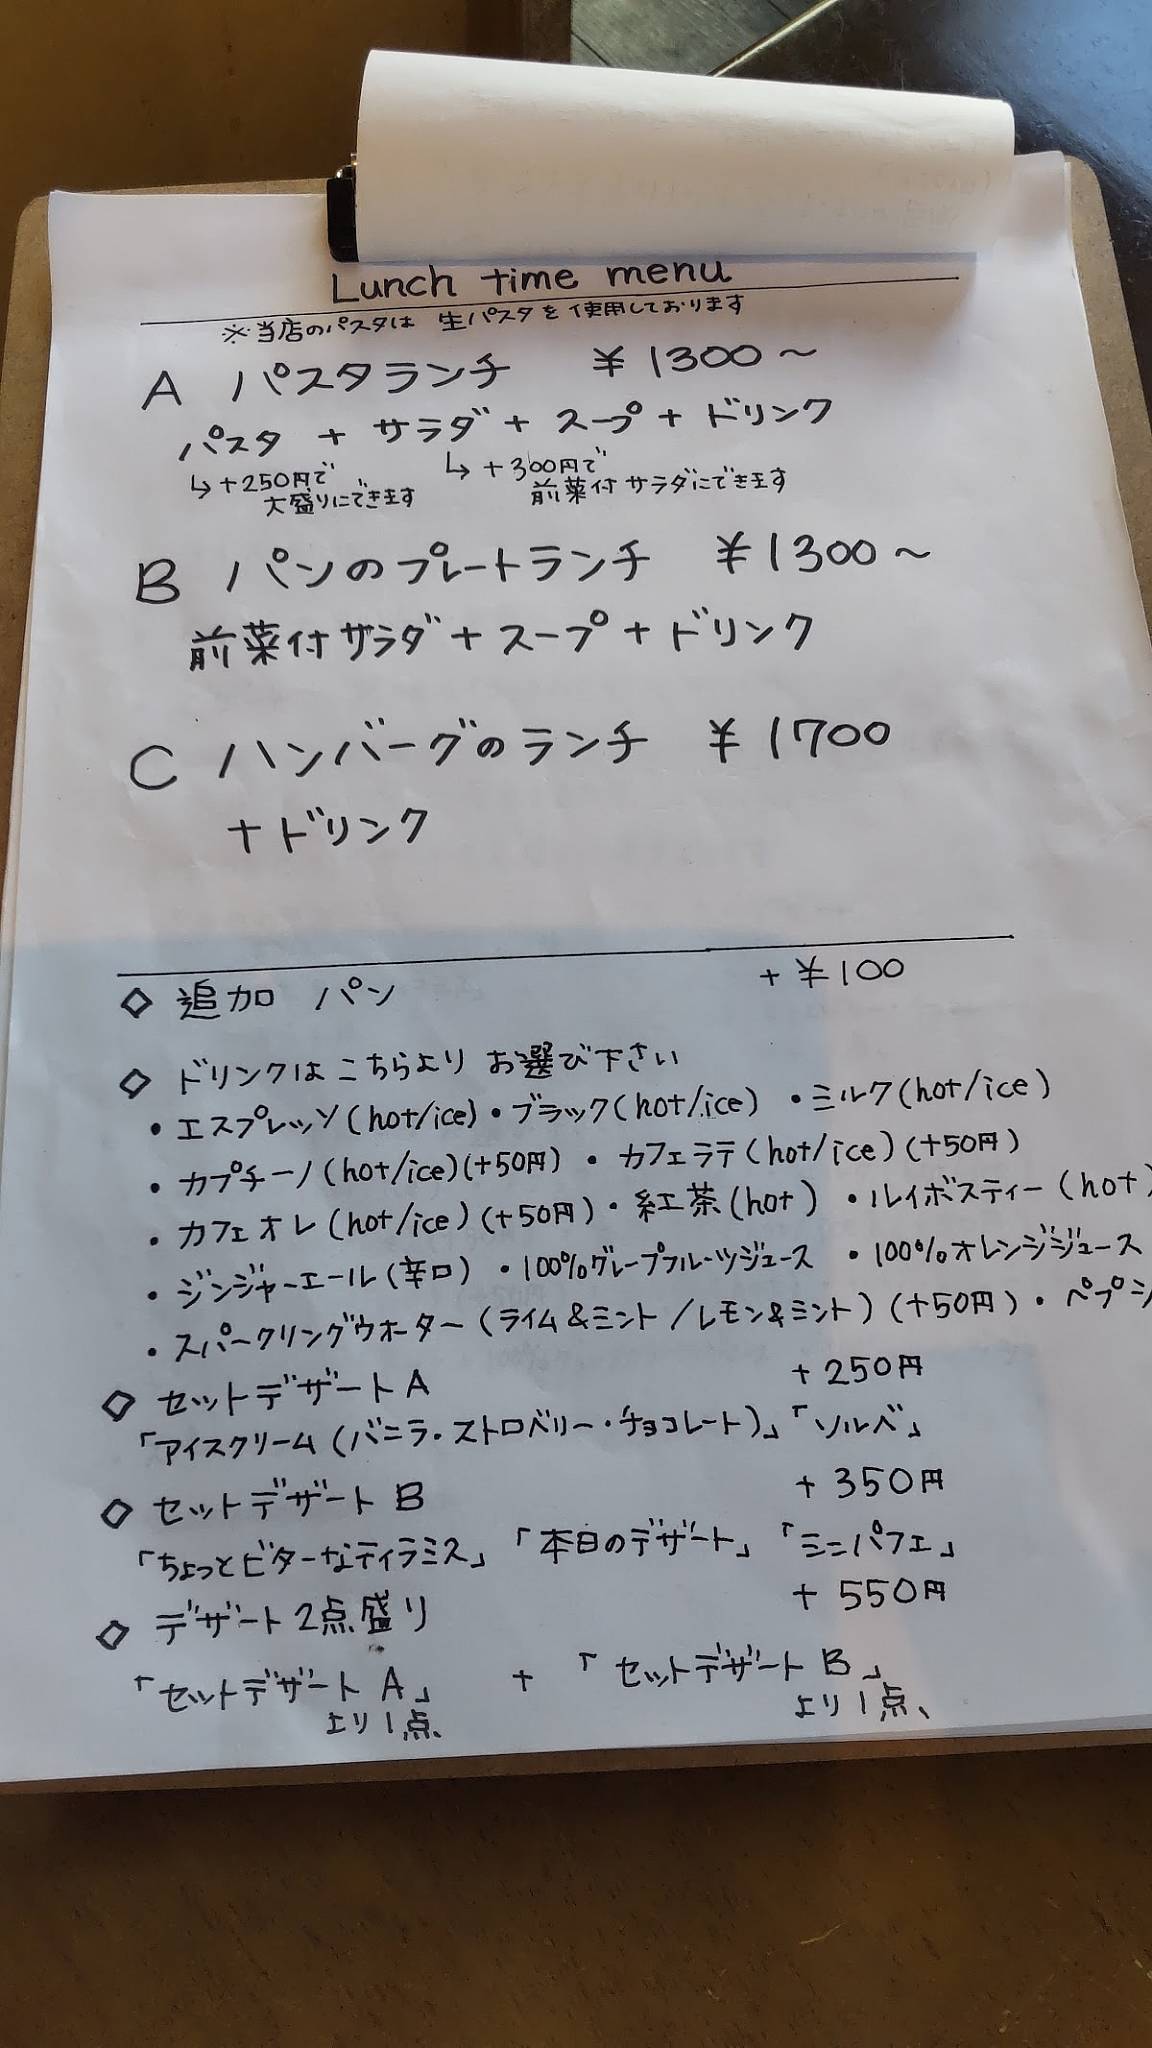 Lunch time menu
※当店のパスタは 生パスタを使用しております
A パスタランチ ¥1300〜
パスタ + サラダ + スープ + ドリンク
↳+250円で ↳+300円で
大盛りにできます 前菜付サラダにできます
B パンのプレートランチ ¥1300〜
前菜付サラダ + スープ + ドリンク
C ハンバーグのランチ ¥1700
+ドリンク
◇ 追加 パン +¥100
◇ ドリンクはこちらより お選び下さい
・エスプレッソ(hot/ice)・ブラック(hot/ice) ・ミルク(hot/ice)
・カプチーノ(hot/ice)(+50円) ・カフェラテ(hot/ice)(+50円)
・カフェオレ(hot/ice)(+50円)・紅茶(hot) ・ルイボスティー(hot)
・ジンジャーエール(辛口) ・100%グレープフルーツジュース ・100%オレンジジュース
・スパークリングウオーター(ライム&ミント/レモン&ミント)(+50円)・ペプシ
◇ セットデザートA +250円
「アイスクリーム(バニラ・ストロベリー・チョコレート)」「ソルベ」
◇ セットデザートB +350円
「ちょっとビターなティラミス」「本日のデザート」「ミニパフェ」
◇ デザート2点盛り +550円
「セットデザートA」 + 「セットデザートB」
より1点、 より1点、